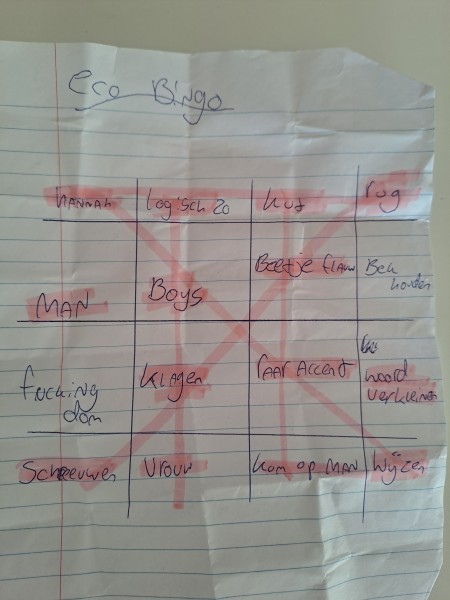 Eco Bingo
HANNAH
logisch zo
kut
rug
MAN
Boys
Beetje flauw
Bek
houden
fucking
dom
Klagen
raar Accent
woord
verkleinen
Schreeuwen
Vrouw
kom op MAN
Wijzen